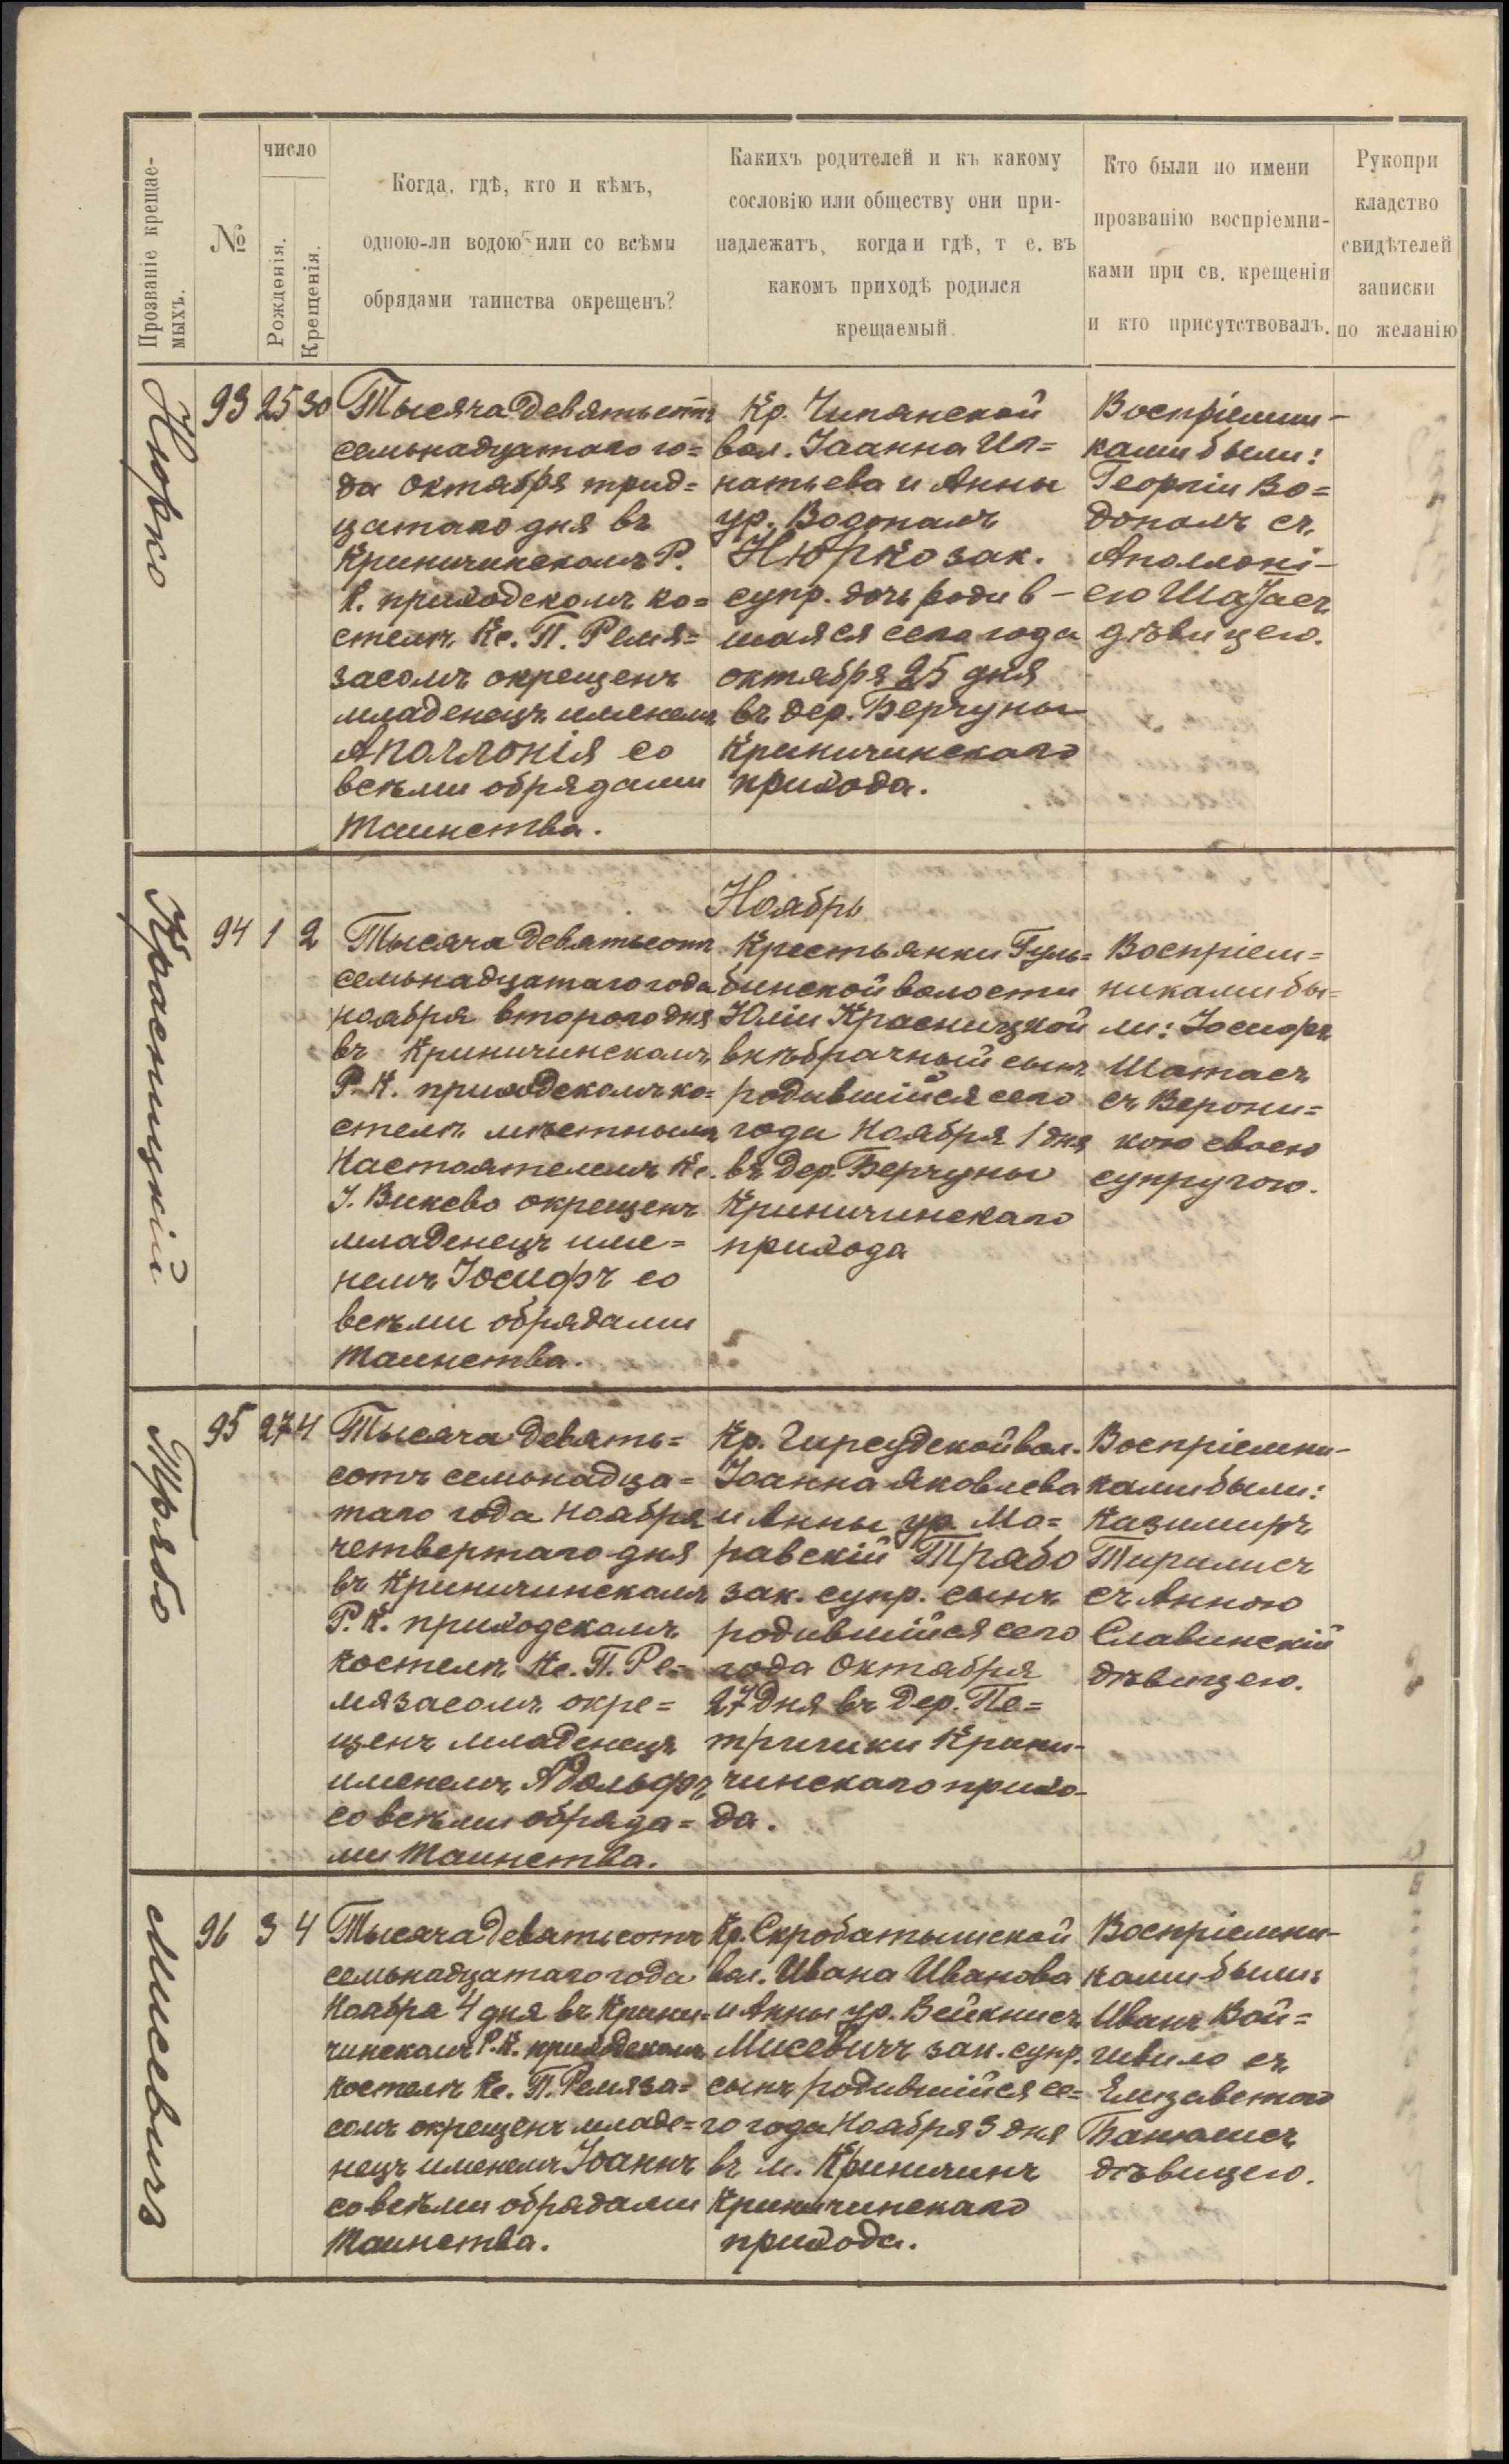 Прозваніе крещае-
мыхъ.
№
число
Рожденія.
Крещенія.
Когда, гдѣ, кто и кѣмъ,
одною-ли водою или со всѣми
обрядами таинства окрещенъ?
Какихъ родителей и къ какому
сословію или обществу они при-
надлежатъ, когда и гдѣ, т е. въ
какомъ приходѣ родился
крещаемый.
Кто были по имени
прозванію воспріемни-
ками при св. крещеніи
и кто присутствовалъ.
Рукопри
кладство
свидѣтелей
записки
по желанію
Нюрко
93 25 30
Тысяча девятьсотъ
семьнадцатаго го=
да октября трид=
цатаго дня въ
Криничинскомъ Р.
К. приходскомъ ко=
стелѣ Кс. П. Ремя=
засомъ окрещенъ
младенецъ именемъ
Аполлонія со
всѣми обрядами
таинства.
Кр. Чипянской
вол. Іоанна Иг=
натьева и Анны
ур. Водопалъ
Нюрко зак.
супр. дочь родив-
шаяся сего года
октября 25 дня
въ дер. Берчуны
Криничинскаго
прихода.
Воспріемни-
ками были:
Георгій Во=
допалъ съ
Аполлоні-
ею
дѣвицею.
Ноябрь
Красницкій
94 1 2
Тысяча девятьсотъ
семьнадцатаго года
ноября второго дня
въ Криничинскомъ
Р. К. приходскомъ ко=
стелѣ мѣстнымъ
Настоятелемъ Кс.
І. Виксво окрещенъ
младенецъ име=
немъ Іосифъ со
всѣми обрядами
таинства.
Крестьянки Гуль=
бинской волости
Юліи Красницкой
внѣбрачный сынъ
родившійся сего
года ноября 1 дня
въ дер. Берчуны
Криничинскаго
прихода
Воспріем=
никами бы=
ли: Іосифъ
Шатасъ
съ Верони=
кою своею
супругою.
Трябо
95 27 4
Тысяча девять=
сотъ семьнадца=
таго года ноября
четвертаго дня
въ Криничинскомъ
Р. К. приходскомъ
костелѣ Кс. П. Ре=
мязасомъ окре=
щенъ младенецъ
именемъ Адольфъ
со всѣми обряда=
ми таинства.
Кр. Гирсудской вол.
Іоанна Яковлева
и Анны ур. Мо=
равскій Трябо
зак. супр. сынъ
родившійся сего
года октября
27 дня въ дер. Пе=
тричики Крини-
чинскаго прихо-
да.
Воспріемни-
ками были:
Казимиръ
Тирилисъ
съ Анною
Славинскій
дѣвицею.
Мисевичъ
96 3 4
Тысяча девятьсотъ
семьнадцатаго года
ноября 4 дня въ Крини=
чинскомъ Р. К. приходскомъ
костелѣ Кс. П. Ремяза=
сомъ окрещенъ младе=
нецъ именемъ Іоаннъ
со всѣми обрядами
таинства.
Кр. Скробатышской
вол. Ивана Иванова
и Анны ур. Вейкнисъ
Мисевичъ зак. супр.
сынъ родившійся се=
го года ноября 3 дня
въ м. Криничинъ
Криничинскаго
прихода.
Воспріемни-
ками были:
Иванъ Вой=
швило съ
Елизаветою
Банюлисъ
дѣвицею.